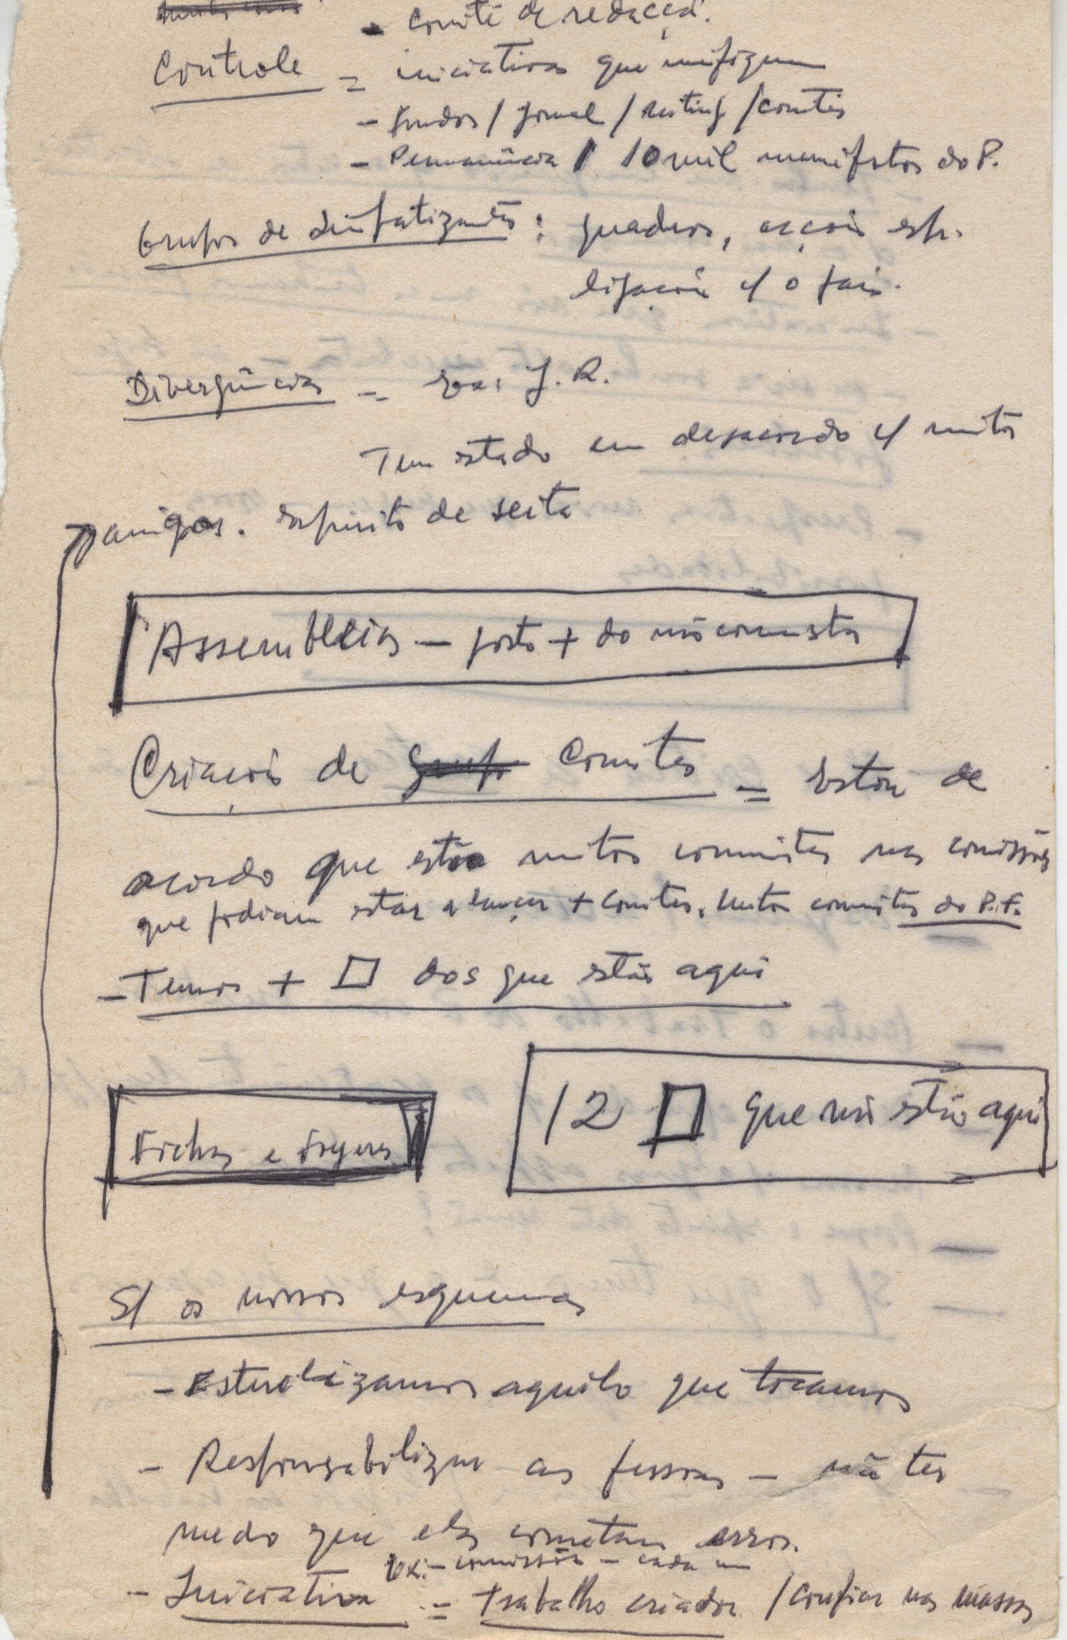 - Comité de redacção.
Controle = iniciativas que unifiquem
- Fundos / Jornal / meeting / comités
- Permanência / 10 mil manifestos do P.
Grupos de simpatizantes: quadros, acções esp.
ligação c/ o país.
Divergências = J. R.
Tem estado em desacordo c/ muitos
amigos. Espírito de seita
Assembleias - gosto + do não comunista
Criação de Comités = Estou de
acordo que estão muitos comunistas nas comissões
que podiam estar a lançar + comités. Muitos comunistas do P.F.
- Temos + □ dos que estão aqui
Fichas e
12 □ que não estão aqui
S/ os nossos esquemas
- Esterelizamos aquilo que tocamos
- Responsabilizar as pessoas - não ter
medo que elas cometam erros.
Ex: - comissão - cada um
- Iniciativa = trabalho criador / confiar nas massas